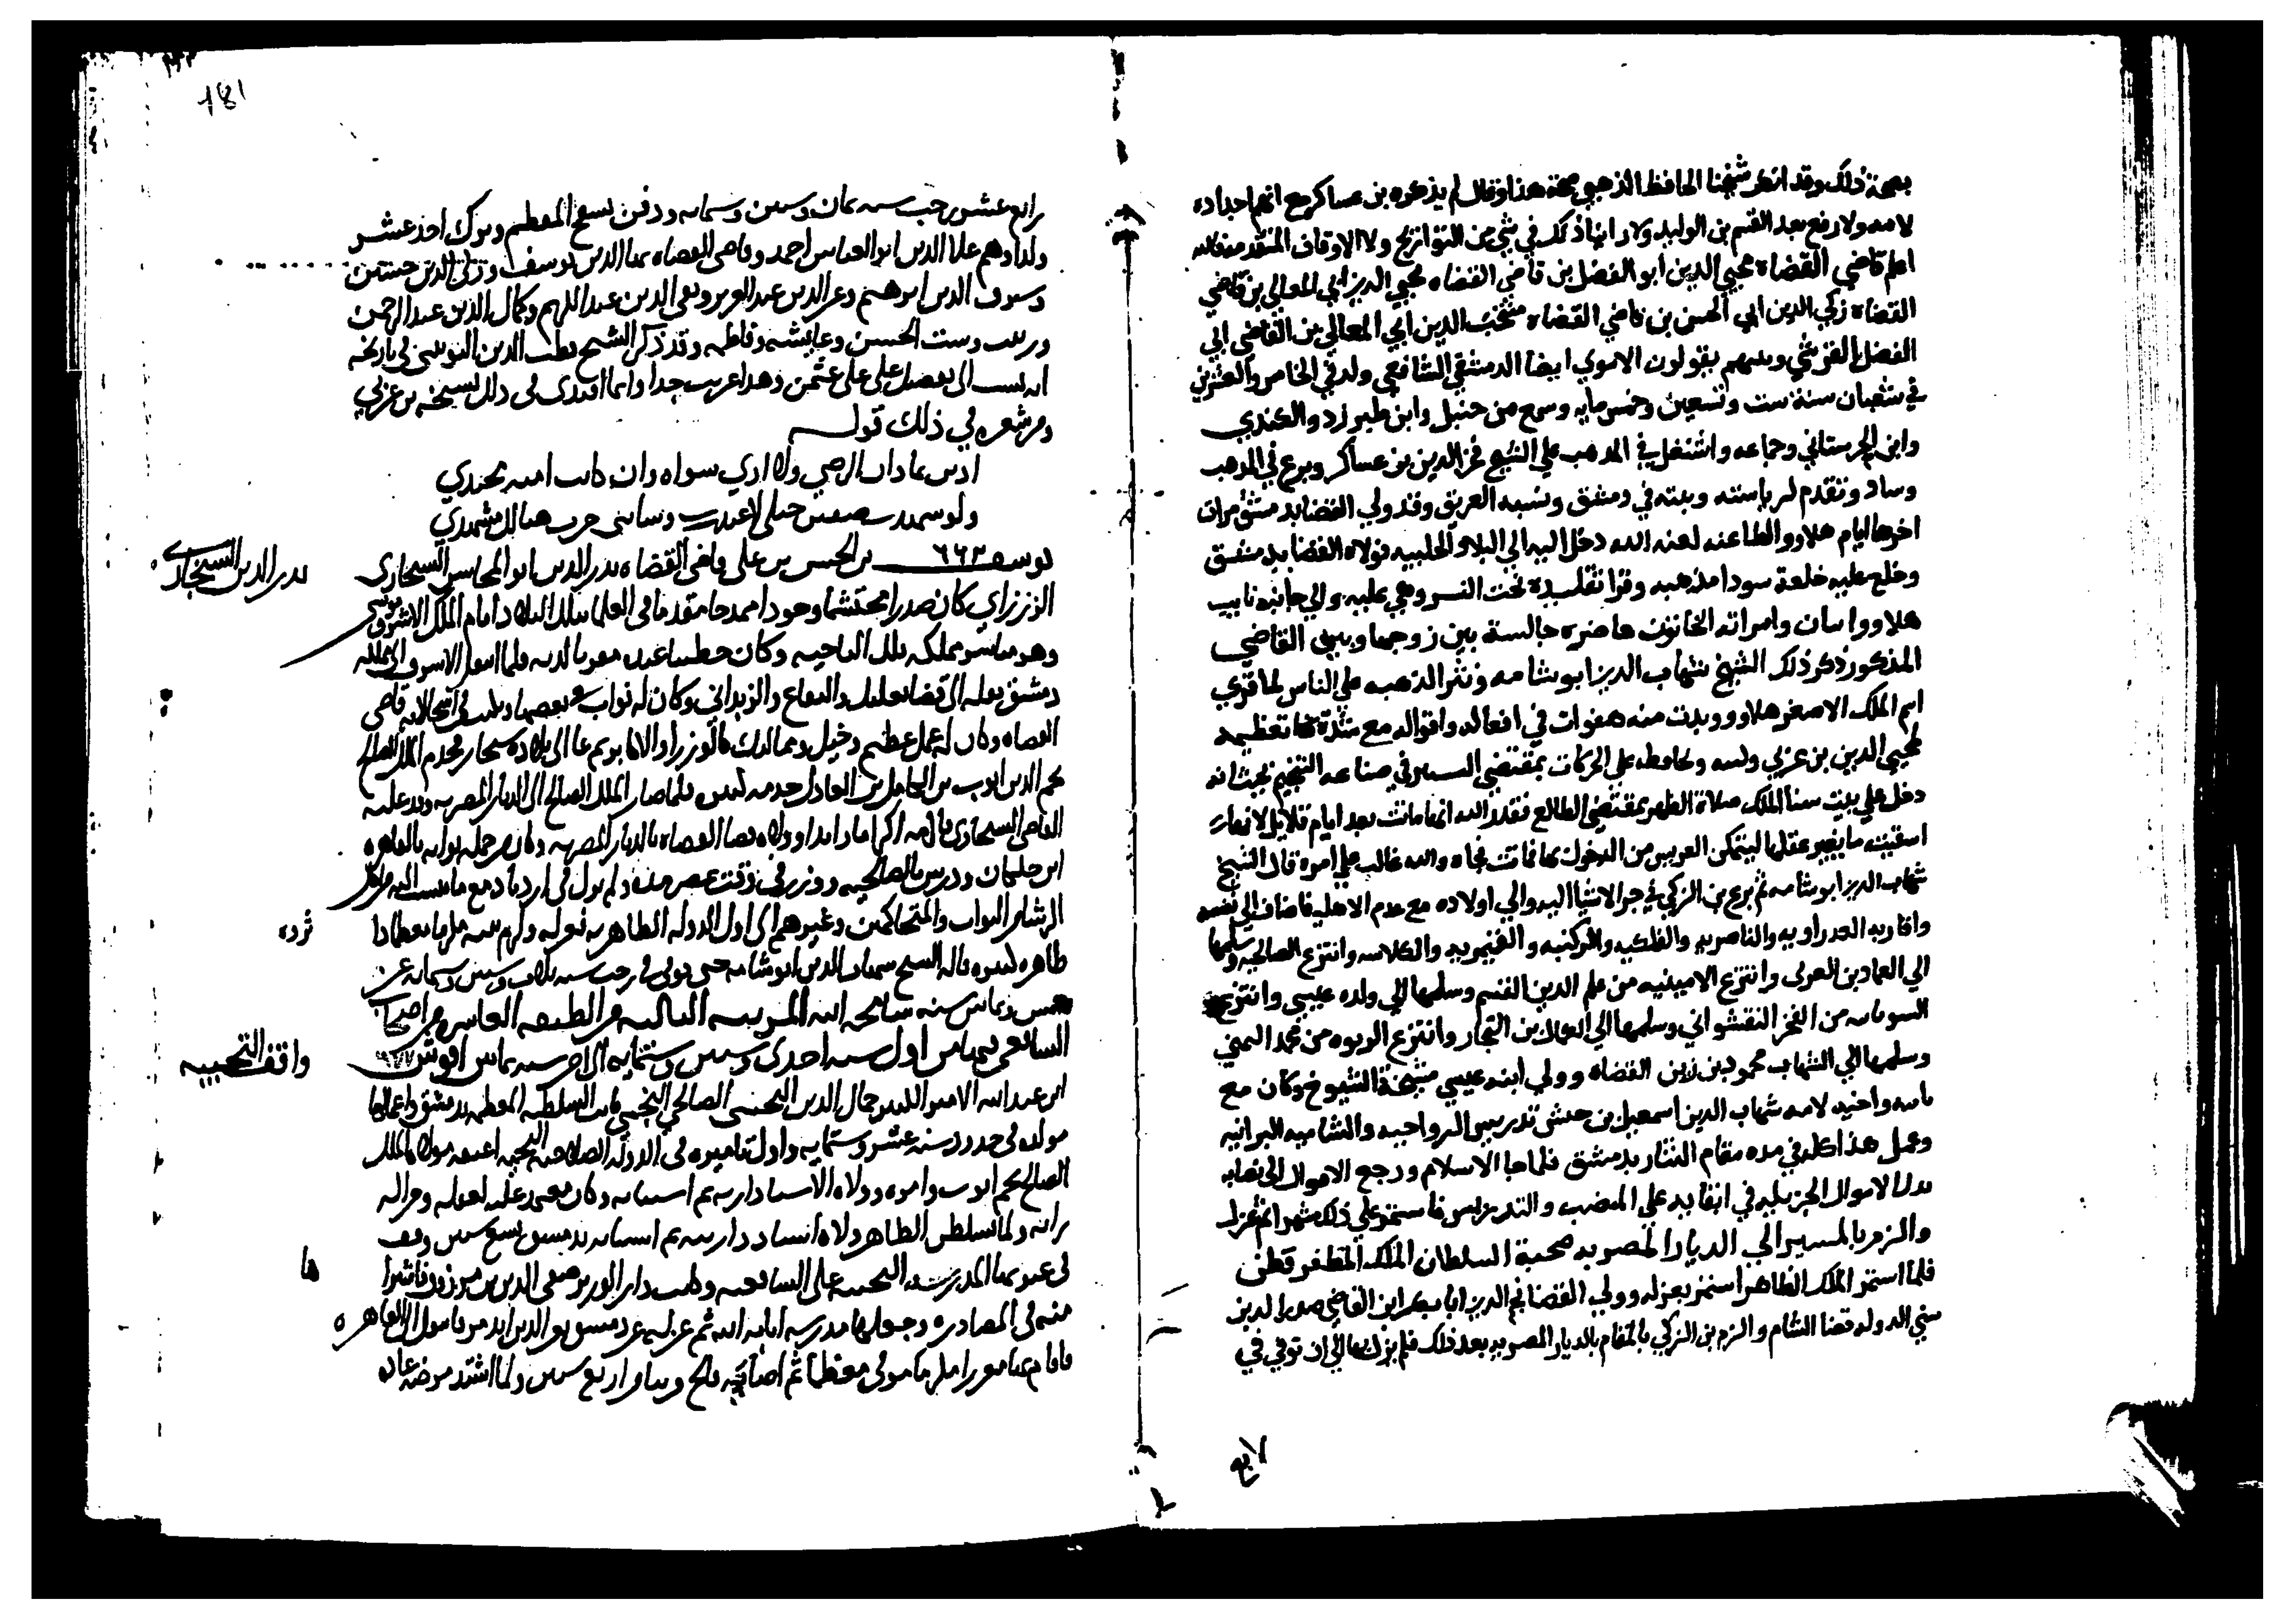 بصحة ذلك وقد انكر شيخنا الحافظ الذهبي صحة هذا وقال لم يذكره بن عساكر مع انهم اجداده
لامه ولا رفع بعد القسم بن الوليد ولا راينا ذلك في شي من التواريخ ولا الاوقاف المتقدمة قاله
اعلم قاضي القضاة محيي الدين ابو الفضل بن قاضي القضاه محيي الدين ابي المعالي بن قاضي
القضاة زكي الدين ابي الحسن بن قاضي القضاة منتخب الدين ابي المعالي بن القاضي ابي
الفضل القرشي وبعضهم يقولون الاموي ايضا الدمشقي الشافعي ولد في الخامس والعشرين
في شعبان سنة ست وتسعين وخمس مايه وسمع من حنبل وابن طبرزد والكندي
وابن الحرستاني وجماعه واشتغل في المذهب علي الشيخ فخر الدين بن عساكر وبرع في المذهب
وساد وتقدم لرياسته وبيته في دمشق ونسبه العريق وقد ولي القضا بدمشق مرات
اخرها ايام هلاوو الطاعنه لعنه الله دخل اليه الي البلاد الحلبيه فولاه القضا بدمشق
وخلع عليه خلعة سودا مذهبه وقرا تقليده تحت النسر وهي عليه والي جانبه نايب
هلاوو ابسان وامراته الخاتون حاضره جالسة بين زوجها وبين القاضي
المذكور ذكر ذلك الشيخ شهاب الدين ابو شامه ونثر الذهب علي الناس لما قري
اسم الملك الاصغر هلاوو وبدت منه هفوات في افعاله واقواله مع شدة تعظيمه
لمحيي الدين بن عربي ولسه ومحافظه علي الحركات بمقتضي السير في صناعه التنجيم بحيث انه
دخل علي بنت سنا الملك صلاة الظهر بمقتضي الطالع فقدر الله انها ماتت بعد ايام قلايل لانها
اسقيت ما يغير عقلها ليتمكن العريس من الدخول بها فماتت فجاه والله غالب علي امره قال الشيخ
شهاب الدين ابو شامه ثم شرع بن الزكي في جر الاشيا اليه والي اولاده مع عدم الاهليه فاضاف الي نفسه
واقاربه العدراويه والناصريه والفلكيه والركنيه والقيمريه والكلاسه وانتزع الصالحيه وسلمها
الي العماد بن العربي وانتزع الامينيه من علم الدين القسم وسلمها الي ولده عيسي وانتزع
من الفخر النقشواني وسلمها الي العماد بن النجار وانتزع الربوه من محمد اليمني
وسلمها الي الشهاب محمود بن زين القضاه وولي ابنه عيسي مشيخة الشيوخ وكان مع
نايبه واخيه لامه شهاب الدين اسمعيل بن حبش تدريس الرواحيه والشاميه البرانيه
وعمل هذا كله في مده مقام التتار بدمشق فلما جا الاسلام ورجع الاموال الي نصابه
بذل الاموال الجزيله في ابقايه علي المنصب والتدريس فاستمر علي ذلك شهرا ثم عزل
والزم بالمسير الي الديار المصريه صحبة السلطان الملك المظفر قطز
فلما استقر الملك الظاهر استمر بعزله وولي القضا نجم الدين ابا بكر ابن القاضي صدر الدين
سني الدوله قضا الشام والزم بن الزكي بالمقام بالديار المصريه بعد ذلك فلم يزل بها الي ان توفي في
لابع
181
رابع عشر رجب سنه ثمان وستين وستمايه ودفن بسفح المقطم وترك احد عشر
ولدا وهم علا الدين ابو العباس احمد وقاضي القضاه بها الدين يوسف وزكي الدين حسين
وشرف الدين ابرهيم وعز الدين عبد العزيز وتقي الدين عبد الكريم وكمال الدين عبد الرحمن
وزينب وست الحسن وعايشه وفاطمه وقد ذكر الشيخ قطب الدين اليونيني في تاريخه
انه نسب الي تفضيل علي علي عثمن وهذا غريب جدا وانما اقتدي في ذلك بشيخه بن عربي
ومن شعره في ذلك قوله
ادين بما دان الوصي ولا اري سواه وان كانت اميه محتدي
ولو شهدت صفين خيلي لاعذرت وساني حرب هنالك مشهدي
يوسف ٦٦٣ بن الحسن بن علي قاضي القضاه بدر الدين ابو المحاسن السنجاري
بدر الدين السنجاري
الزرزاري كان صدرا محتشما وجوادا ممدحا مقدما في العلما بتلك البلاد ايام الملك الاشرف موسي
وهو مباشر مملكه بتلك الناحيه وكان خطيبا عنده معربا لديه فلما انتقل الاشرف الي مملكه
دمشق نقله الي قضا بعلبك والبقاع والزبداني وكان له نواب في بعضها وكتب في اسجالاته قاضي
القضاه وكان له تجمل عظيم وخيل ومماليك كالوزرا والاكابر ثم عاد الي بلاده سنجار فخدم الملك الصالح
نجم الدين ايوب بن الكامل بن العادل خدمه كبيره فلما صار الملك الصالح الي الديار المصريه وفد عليه
القاضي السنجاري فاكرمه اكراما زايدا وولاه قضا القضاه بالديار المصريه وكان من جمله نوابه بالقاهره
ابن خلكان ودرس بالصالحيه ووزر في وقت ولم يزل في ازدياد مع ما نسب اليه من
الرشا من النواب والمتحاكمين وغيرهم الي اول الدوله الظاهريه فعزله ولزم بيته مكرما معظما ذا
ثروه
ظاهره كبيره قاله الشيخ شهاب الدين ابو شامه حتي توفي في رجب سنه ثلاث وستين وستمايه عن
خمس وثمانين سنه سامحه الله المرتبه الثانيه من الطبقه العاشره من اصحاب
الشافعي فيها من اول سنه احدي وسبعين وستمايه الي اخر سنه ثمانين اقوش ٦٧٧
واقف النجيبيه
ابن عبد الله الامير الكبير جمال الدين النجيبي الصالحي النجمي نايب السلطنه المعظمه بدمشق واعمالها
مولده في حدود سنه عشر وستمايه واول تاميره في الدوله الصلاحيه النجميه اعتقه مولاه الملك
الصالح نجم ايوب وامره وولاه الاستاداريه ثم استنابه وكان يعتمد عليه لعقله وجزاله
رايه ولما تسلطن الظاهر ولاه استادداريته ثم استنابه بدمشق تسع سنين وقف
في غبونها المدرسه النجيبيه علي الشافعيه وكانت دار الوزير صفي الدين بن مرزوق فاشتراها
منه في المصادره وجعلها مدرسه اثابه الله ثم عزل عن دمشق بعز الدين ايدمر فتحول الي القاهره
فاقام بها موقرا مكرما معظما ثم اصابه فالج وبقي اربع سنين ولما اشتد مرضه عاده